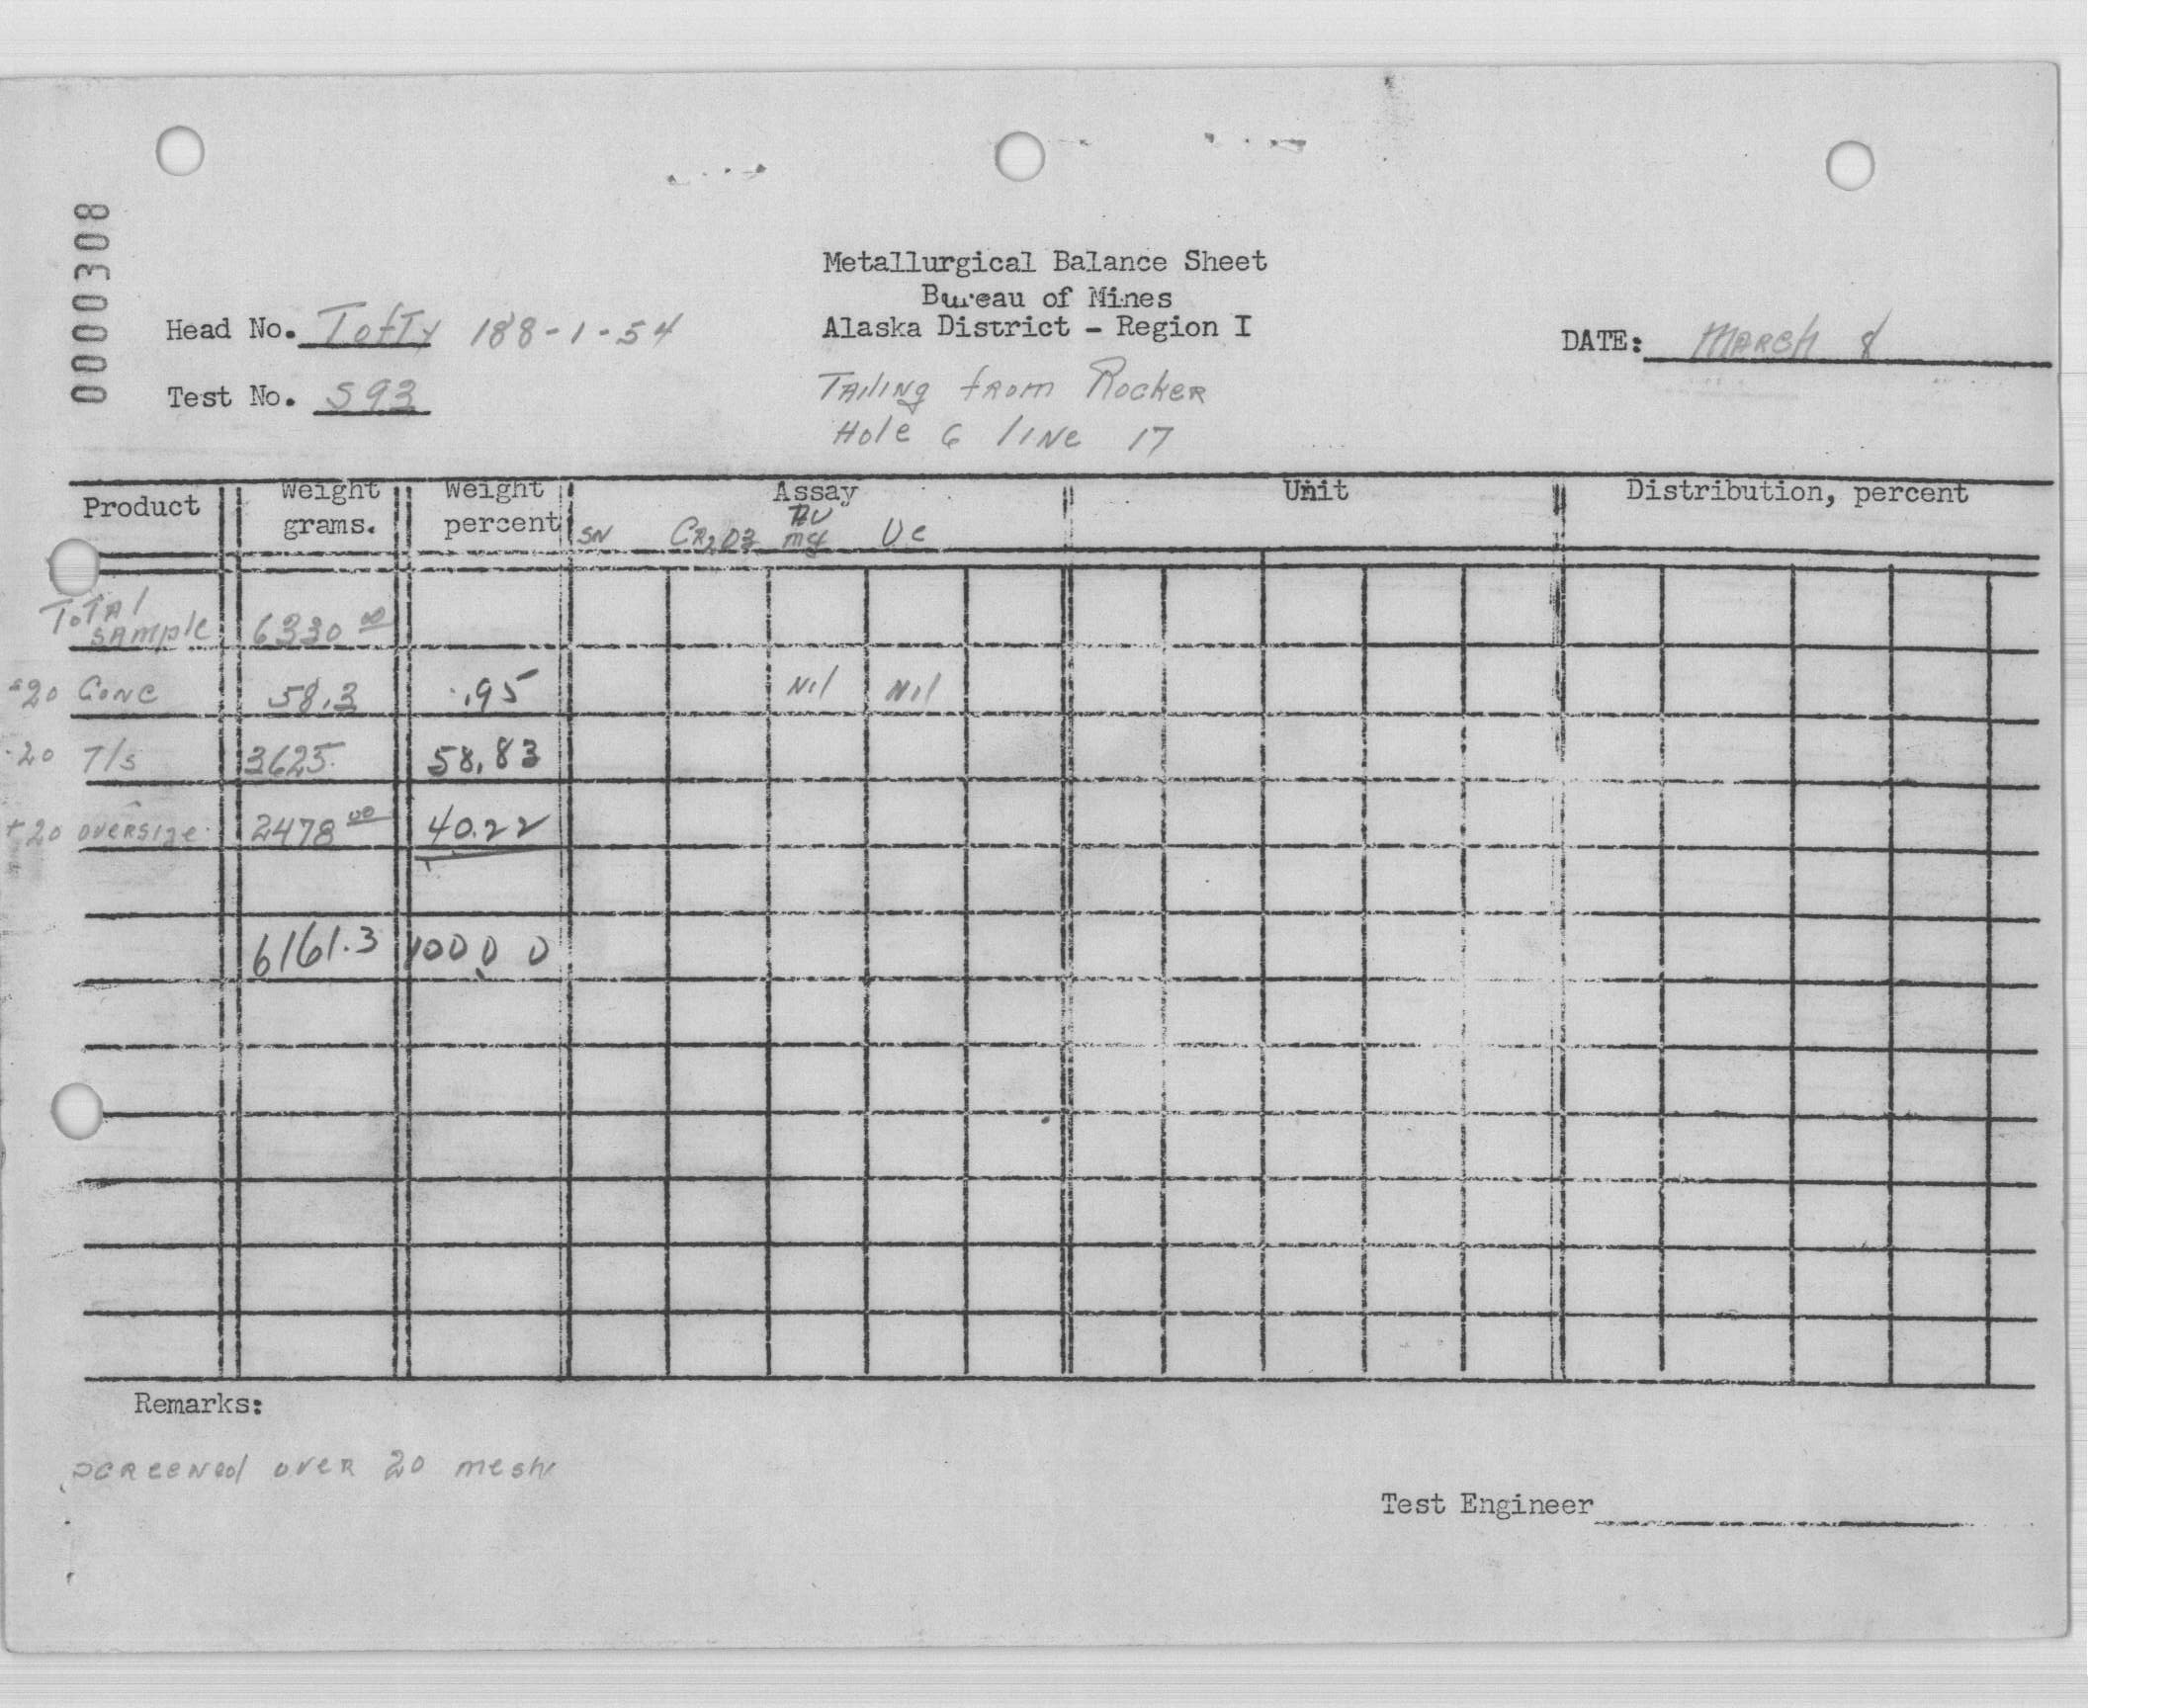 0000308
Metallurgical Balance Sheet
Bureau of Mines
Alaska District - Region I
Head No. Tofty 188-1-54
DATE: March 8
Test No. S93
Tailing from Rocker
Hole 6 line 17
Product Weight grams. Weight percent Assay Unit Distribution, percent
SN CR2O3 AU mg Ue
Total Sample 6330 00
-20 Conc 58.3 .95 Nil Nil
-20 T/s 3625. 58.83
+20 oversize 2478 00 40.22
6161.3 100.00
Remarks:
Screened over 20 mesh
Test Engineer